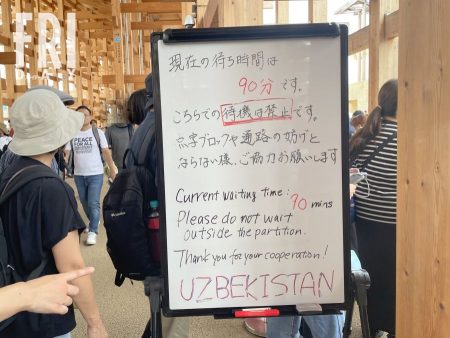 FRI
DAY
現在の待ち時間は
90分です。
こちらでの待機は禁止です。
点字ブロックや通路の妨げと
ならない様、ご協力お願いします
Current waiting time:
90 mins
Please do not wait
outside the partition.
Thank you for your cooperation!
UZBEKISTAN
PEACE
FOR ALL